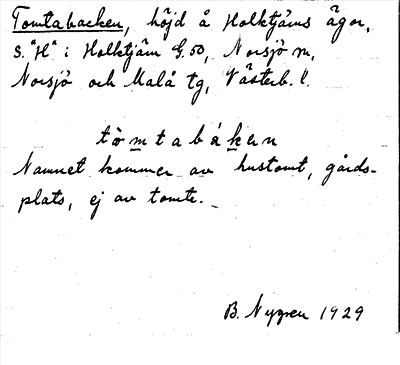 Tomtabacken, höjd å Holktjärns ägor,
S. "H" i Holktjärn G. 50, Norsjö sn,
Norsjö och Malå tg, Västerb. l.
tòmtabáken
Namnet kommer av hustomt, gårds-
plats, ej av tomte.
B. Nygren 1929